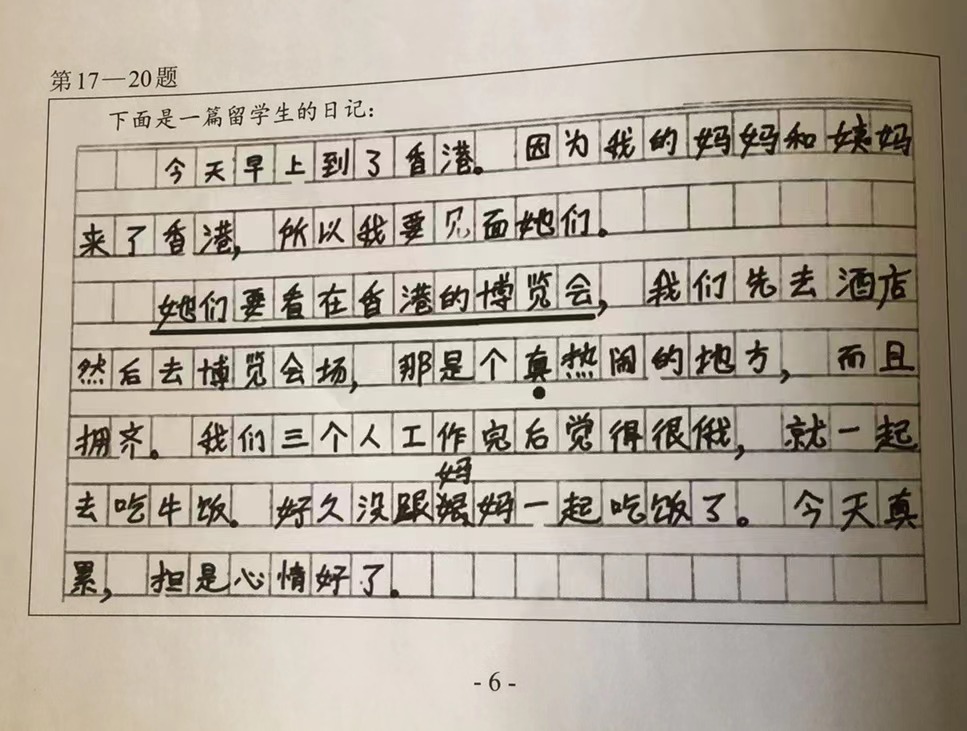 第17—20题
下面是一篇留学生的日记：
今天早上到了香港。因为我的妈妈和姨妈
来了香港，所以我要见面她们。
她们要看在香港的博览会，我们先去酒店
然后去博览会场，那是个真热闹的地方，而且
拥齐。我们三个人工作完后觉得很俄，就一起
去吃牛饭。好久没跟妈妈一起吃饭了。今天真
累，担是心情好了。
- 6 -